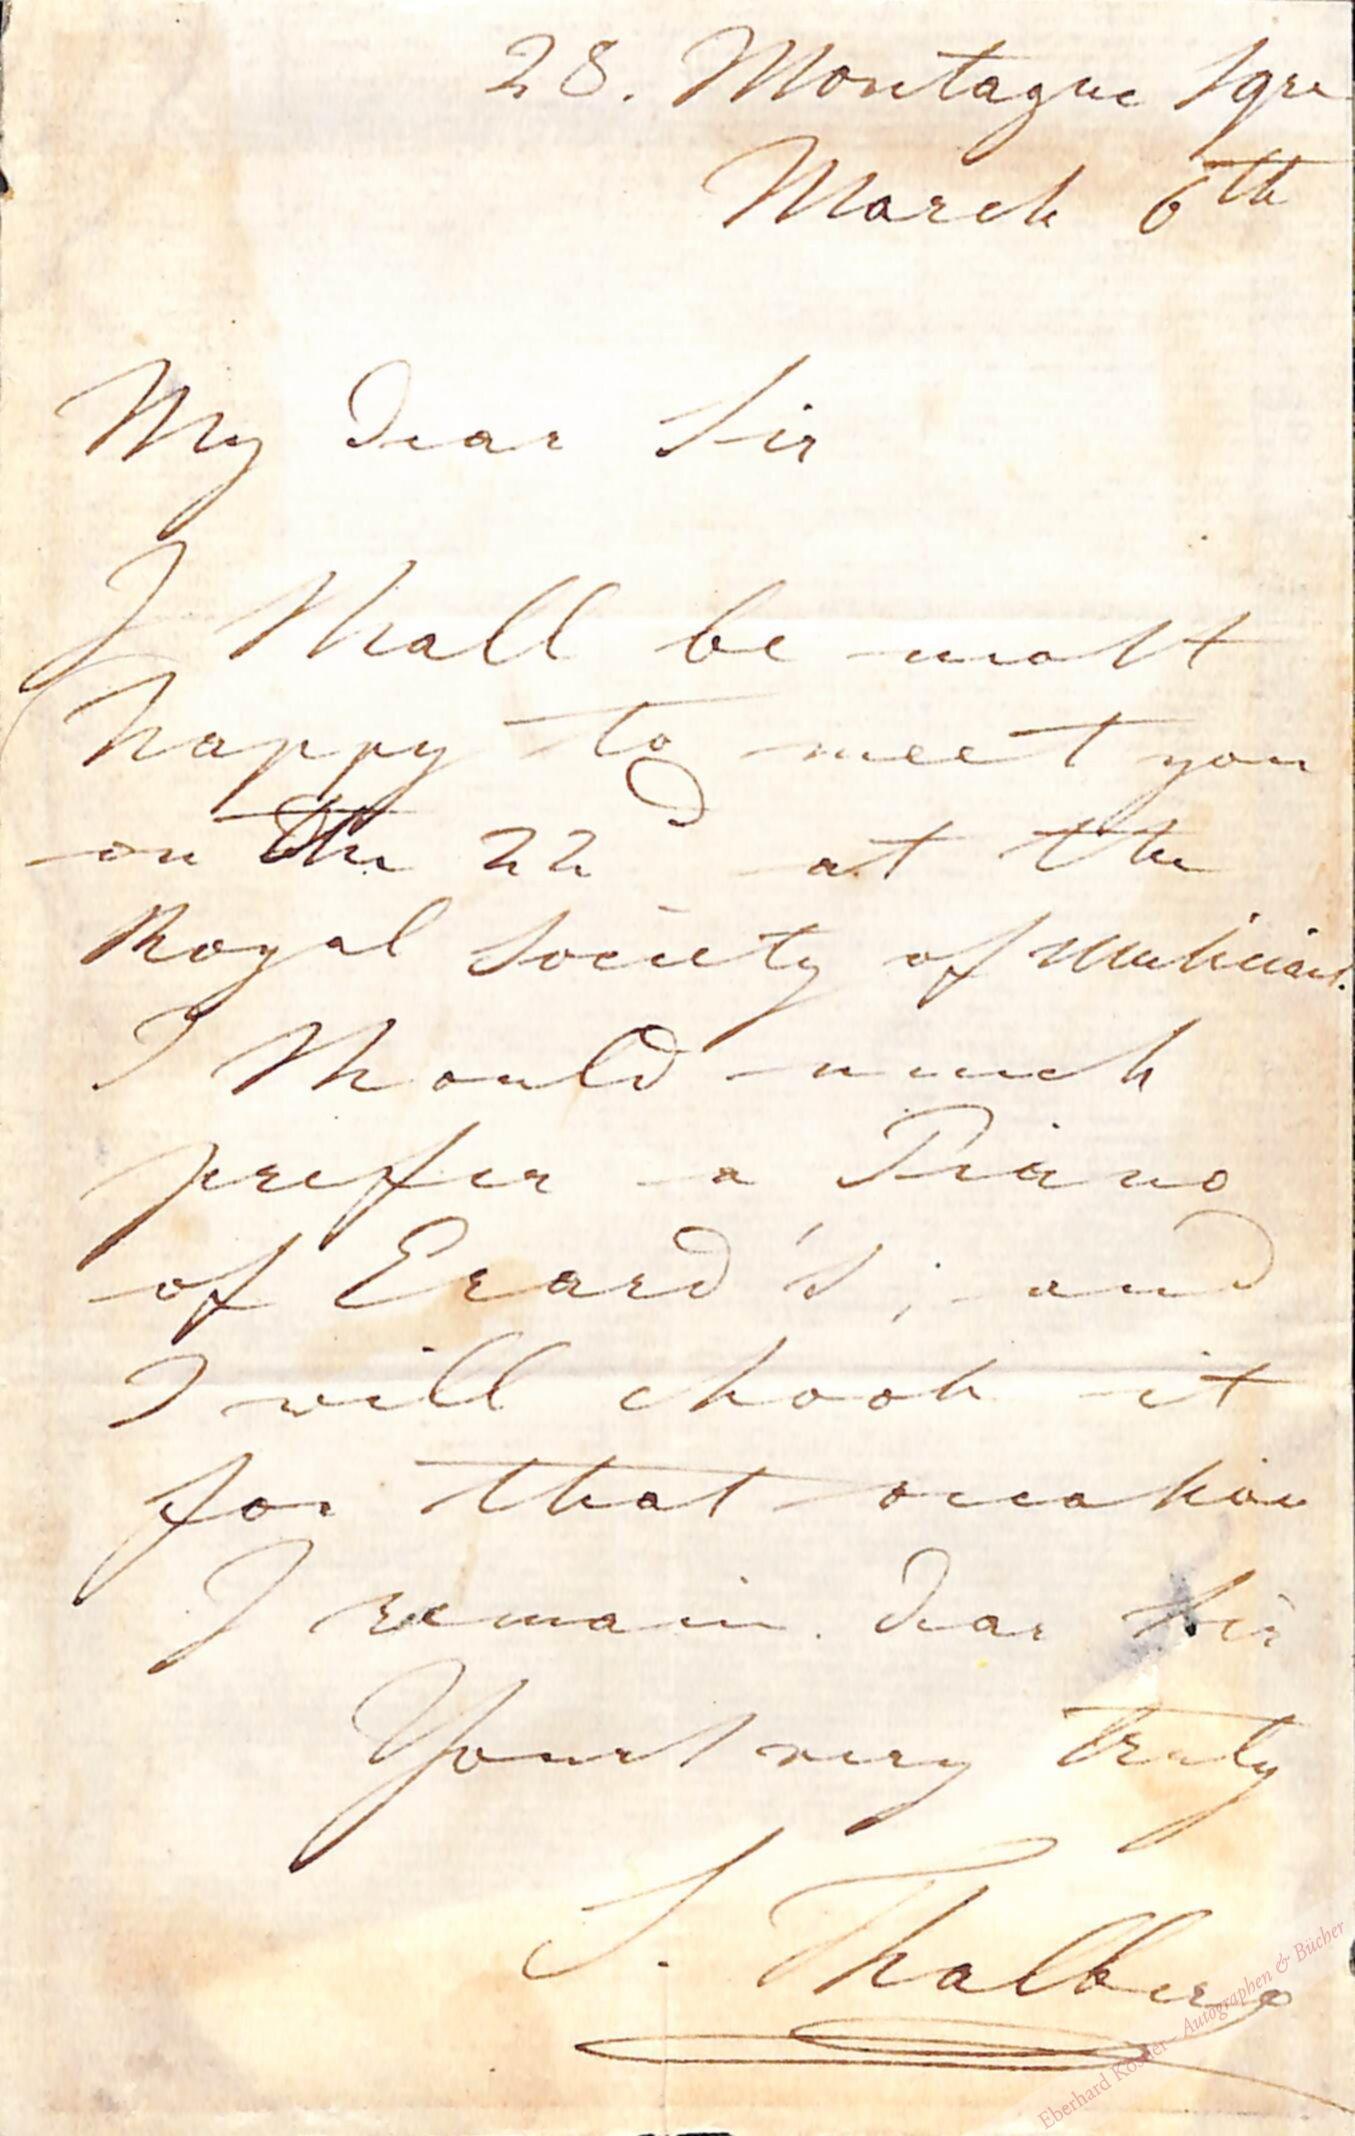 28. Montague Sqre
March 6th
My dear Sir
I shall be most
happy to meet you
on the 22d at the
Royal Society of Musicians.
I should much
prefer a Piano
of Erard's; and
I will choose it
for that occasion
I remain dear Sir
Yours very truly
S. Thalberg
Eberhard Köstler - Autographen & Bücher